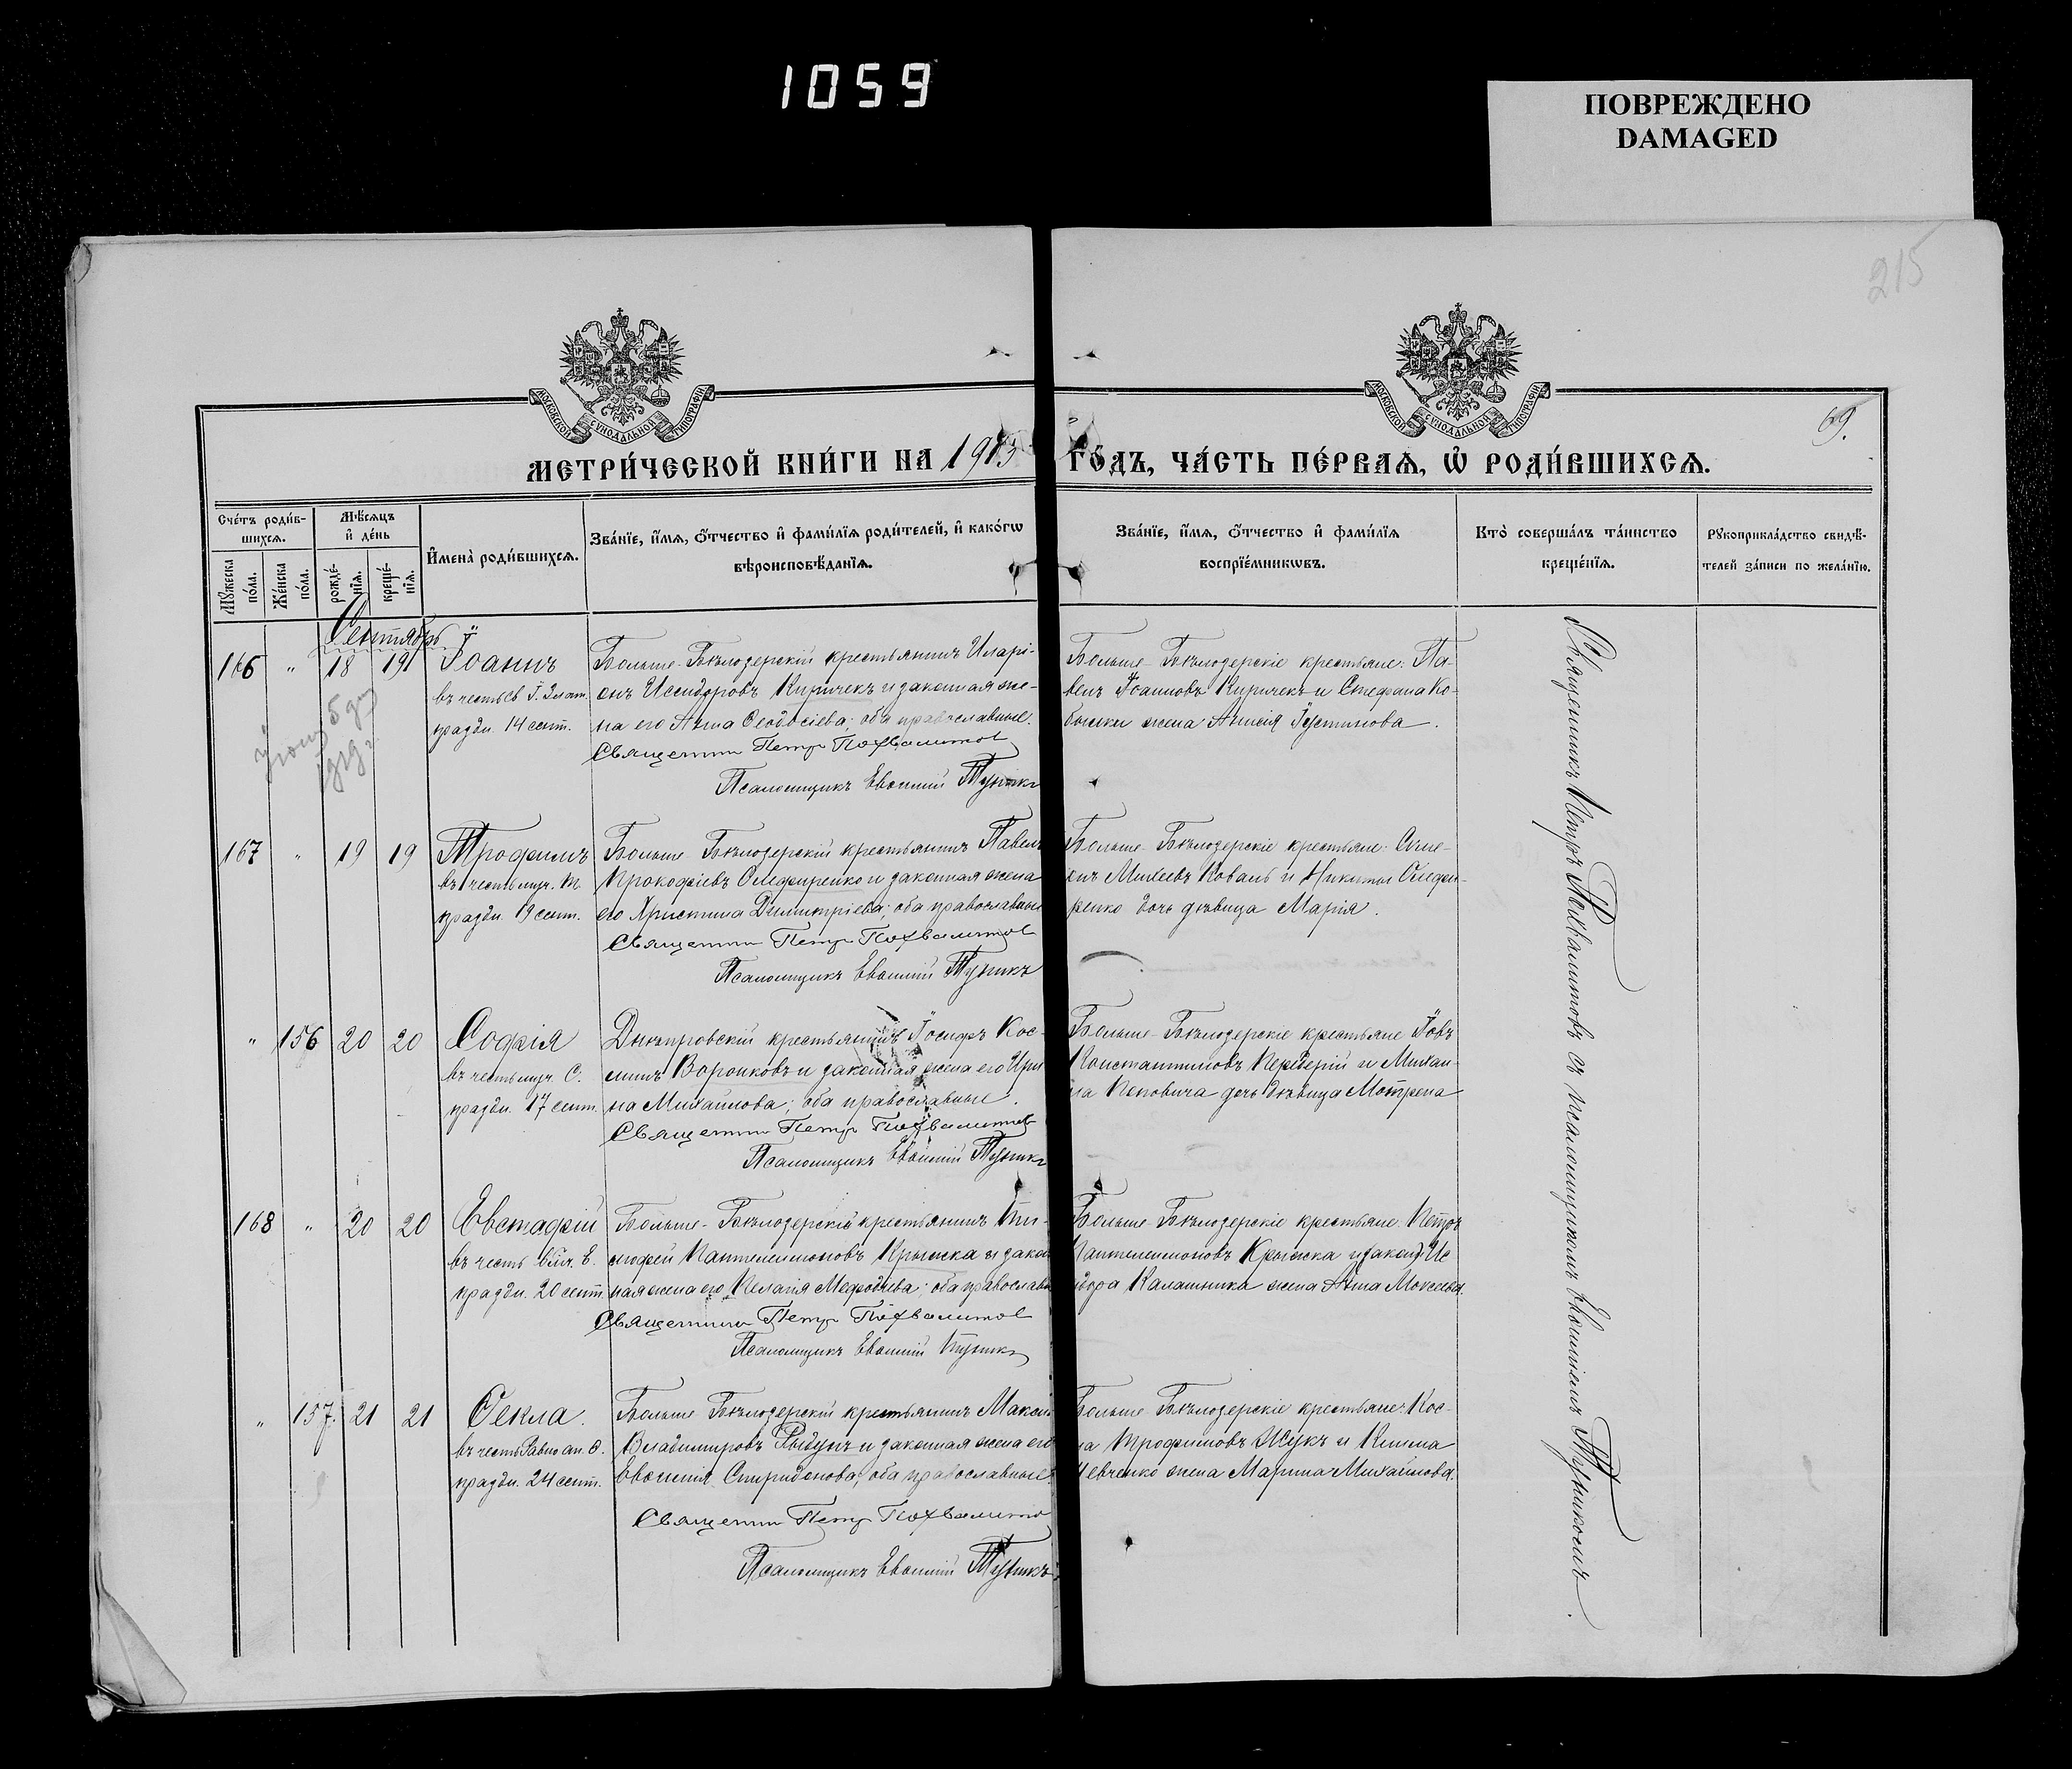 1059
ПОВРЕЖДЕНО
DAMAGED
215
69.
МОСКОВСКОЙ СѴНОДАЛЬНОЙ ТИПОГРАФІИ
МОСКОВСКОЙ СѴНОДАЛЬНОЙ ТИПОГРАФІИ
МЕТРИ́ЧЕСКОЙ КНИ́ГИ НА 1913 ГО́ДЪ, ЧА́СТЬ ПЕ́РВАѦ, Ѡ҆ РОДИ́ВШИХСѦ.
Сче́тъ роди́в-
шихсѧ.
Мѣ́сѧцъ
и҆ де́нь
Мꙋ́жеска
по́ла.
Же́нска
по́ла.
рожде́-
нїѧ.
креще́-
нїѧ.
И҆мена̀ роди́вшихсѧ.
Зва́нїе, и҆́мѧ, ѻ҆́тчество и҆ фами́лїѧ роди́телей, и҆ како́гѡ
вѣроисповѣ́данїѧ.
Зва́нїе, и҆́мѧ, ѻ҆́тчество и҆ фами́лїѧ
воспрїе́мникѡвъ.
Кто̀ соверша́лъ та́инство
креще́нїѧ.
Рꙋкоприкла́дство свидѣ́-
телей за́писи по жела́нїю.
Сентябрь
166 " 18 19 Іоаннъ
въ честь св. І. Злат.
праздн. 14 сент.
Больше-Бѣлозерскій крестьянинъ Иларі-
онъ Исидоровъ Киричекъ и законная же-
на его Анна Ѳеодосіева; оба православные.
Священник Петр Похвалитов
Псаломщикъ Евѳимій Тупикъ
Больше-Бѣлозерскіе крестьяне: Па-
велъ Іоанновъ Киричекъ и Стефана Ко-
жена Анисія Іустинова.
167 " 19 19 Трофимъ
въ честь муч. Т.
праздн. 19 сент.
Больше-Бѣлозерскій крестьянинъ Павелъ
Прокофіевъ Олефиренко и законная жена
его Христина Димитріева; оба православные
Священник Петр Похвалитов
Псаломщикъ Евѳимій Тупикъ
Больше-Бѣлозерскіе крестьяне: Симе-
онъ Михеевъ Коваль и Никиты Олефи-
ренко дочь дѣвица Марія.
" 156 20 20 Софія
въ честь муч. С.
праздн. 17 сент.
Днѣпровскій крестьянинъ Іосифъ Кос-
минъ Воронковъ и законная жена его Ири
на Михайлова; оба православные.
Священник Петр Похвалитов
Псаломщикъ Евѳимій Тупикъ
Больше-Бѣлозерскіе крестьяне Іовъ
Константиновъ Передерій и Михаи-
ла Поповича дочь дѣвица Мотрена
168 " 20 20 Евстафій
въ честь влмч. Е.
праздн. 20 сент.
Больше-Бѣлозерскій крестьянинъ Ти-
мофей Пантелеимоновъ Крыжка и закон
ная жена его Пелагія Меѳодіева; оба православн
Священник Петр Похвалитов
Псаломщикъ Евѳимій Тупикъ
Больше-Бѣлозерскіе крестьяне: Петръ
Пантелеимоновъ Крыжка и Ис
идора Калашника жена Анна Моисеева.
" 157. 21 21 Ѳекла.
въ честь Равноап. Ѳ.
праздн. 24 сент.
Больше Бѣлозерскій крестьянинъ Максим
Владимировъ Рыдунъ и законная жена его
Евѳимія Спиридонова; оба православные
Священник Петр Похвалитов
Псаломщикъ Евѳимій Тупикъ
Больше Бѣлозерскіе крестьяне: Кос-
ма Трофимовъ Жукъ и Климa
Шевченко жена Марина Михайлова.
Священникъ Петръ Похвалитовъ съ псаломщикомъ Евѳиміемъ Тупикомъ.